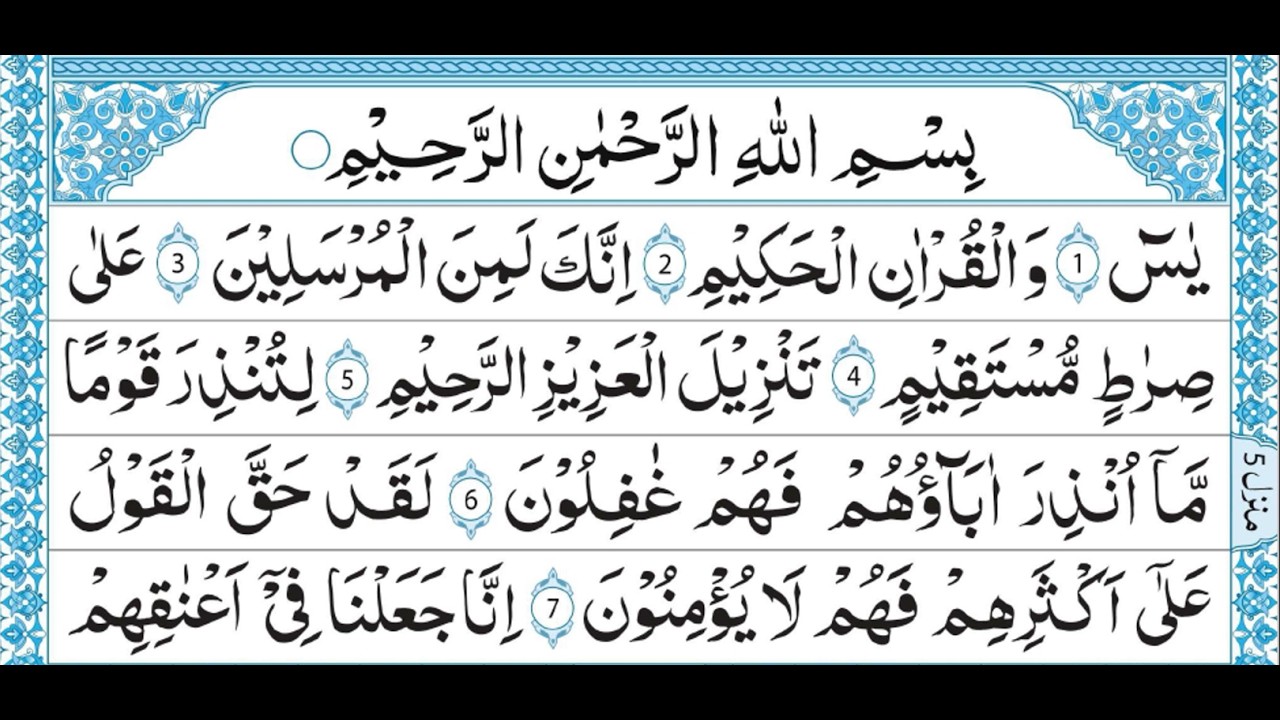 بِسْمِ اللّٰهِ الرَّحْمٰنِ الرَّحِيْمِ
يٰسٓ 1 وَالْقُرْاٰنِ الْحَكِيْمِ 2 اِنَّكَ لَمِنَ الْمُرْسَلِيْنَ 3 عَلٰى
صِرٰطٍ مُّسْتَقِيْمٍ 4 تَنْزِيْلَ الْعَزِيْزِ الرَّحِيْمِ 5 لِتُنْذِرَ قَوْمًا
مَّآ اُنْذِرَ اٰبَآؤُهُمْ فَهُمْ غٰفِلُوْنَ 6 لَقَدْ حَقَّ الْقَوْلُ
عَلٰٓى اَكْثَرِهِمْ فَهُمْ لَا يُؤْمِنُوْنَ 7 اِنَّا جَعَلْنَا فِيْٓ اَعْنٰقِهِمْ
منزل 5